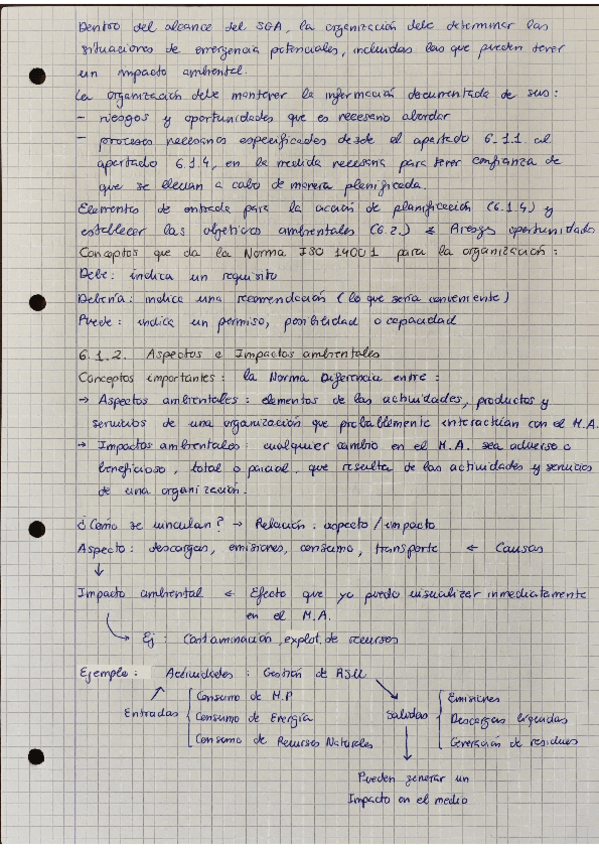 Dentro del alcance del SGA, la organización debe determinar las
situaciones de emergencia potenciales, incluidas las que pueden tener
un impacto ambiental.
La organización debe mantener la información documentada de sus:
- riesgos y oportunidades que es necesario abordar
- procesos necesarios especificados desde el apartado 6.1.1 al
apartado 6.1.4, en la medida necesaria para tener confianza de
que se llevan a cabo de manera planificada.
Elementos de entrada para la acción de planificación (6.1.4) y
establecer los objetivos ambientales (6.2.) Riesgos oportunidades
Conceptos que da la Norma ISO 14001 para la organización:
Debe: indica un requisito
Debería: indica una recomendación (lo que sería conveniente)
Puede: indica un permiso, posibilidad o capacidad
6.1.2. Aspectos e Impactos ambientales
Conceptos importantes: la Norma Diferencia entre:
→ Aspectos ambientales: elementos de las actividades, productos y
servicios de una organización que probablemente interactúan con el M.A.
→ Impactos ambientales: cualquier cambio en el M.A. sea adverso o
beneficioso, total o parcial, que resulta de las actividades y servicios
de una organización.
¿Cómo se vinculan? → Relación: aspecto / impacto
Aspecto: descargas, emisiones, consumo, transporte ← Causas
↓
Impacto ambiental ← Efecto que yo puedo visualizar inmediatamente
en el M.A.
→ Ej: Contaminación, explot. de recursos
Ejemplo: Actividades: Gestión de
Entradas { Consumo de M.P
Consumo de Energía
Consumo de Recursos Naturales
Salidas { Emisiones
Descargas líquidas
Generación de residuos
↓
Pueden generar un
Impacto en el medio